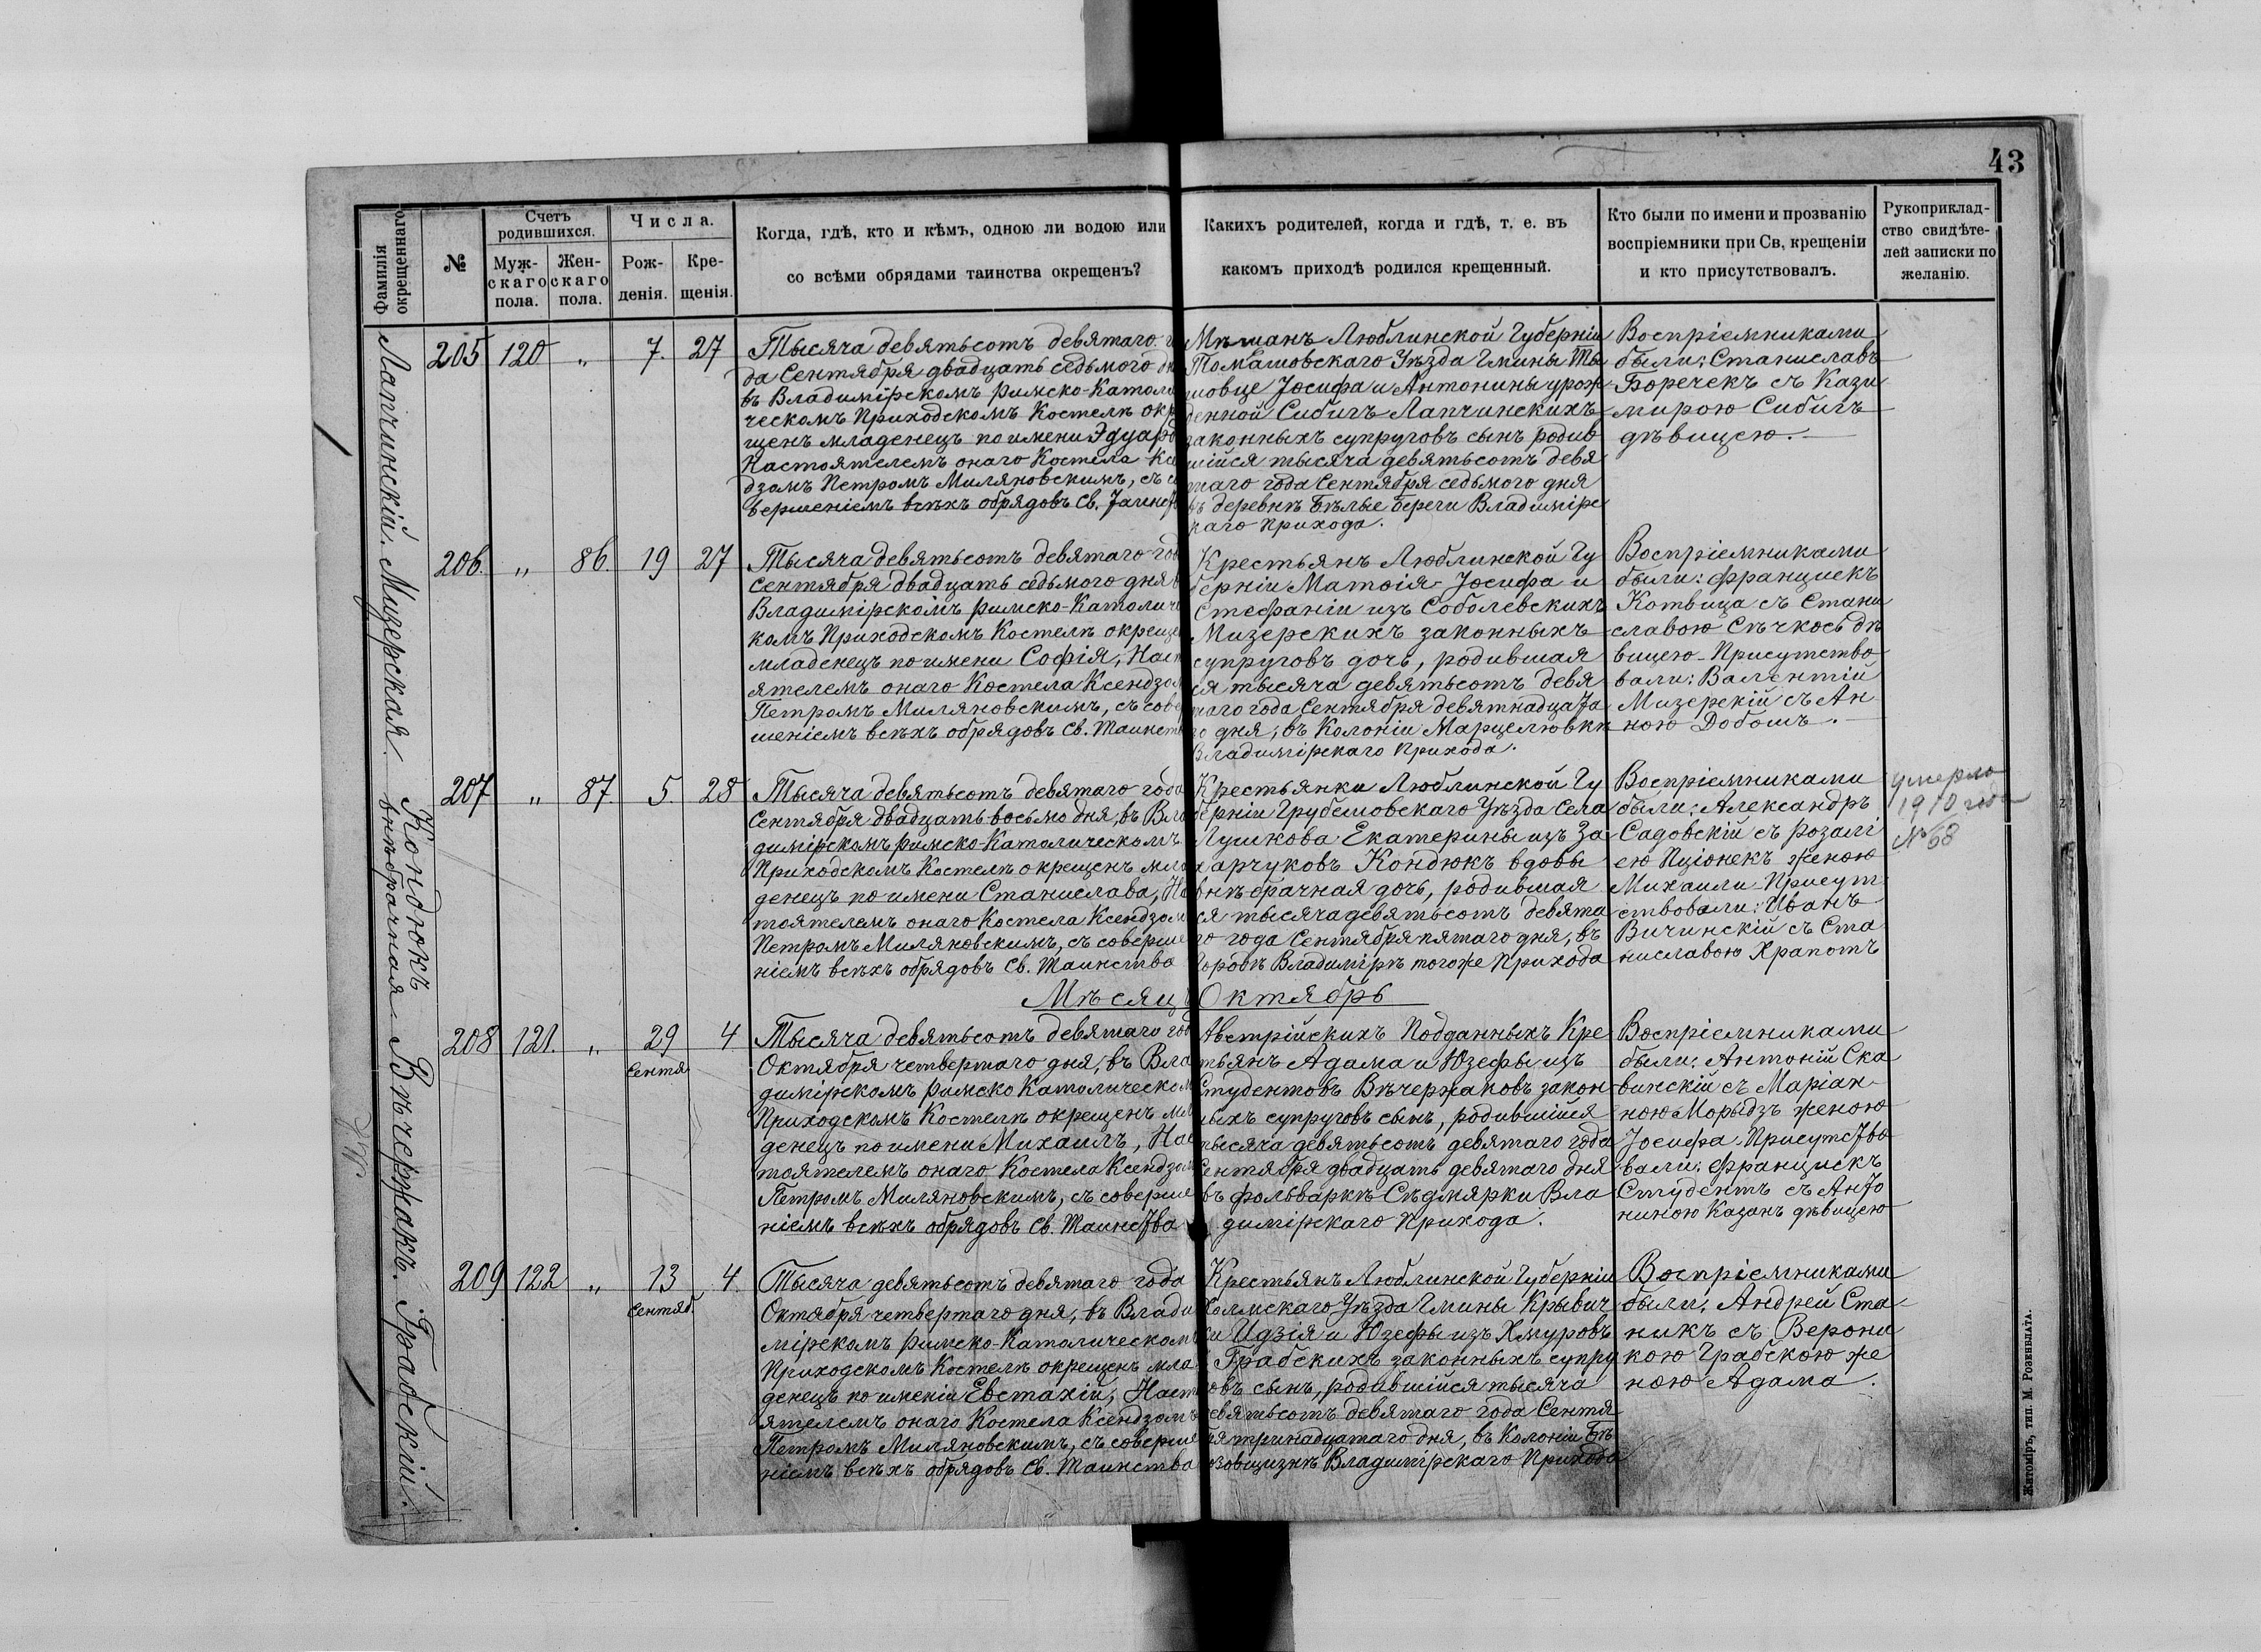 43
Фамилія
окрещеннаго
№
Счетъ
родившихся.
Муж-
скаго
пола.
Жен-
скаго
пола.
Числа.
Рож-
денія.
Кре-
щенія.
Когда, гдѣ, кто и кѣмъ, одною ли водою или
со всѣми обрядами таинства окрещенъ?
Какихъ родителей, когда и гдѣ, т. е. въ
какомъ приходѣ родился крещенный.
Кто были по имени и прозванію
воспріемники при Св, крещеніи
и кто присутствовалъ.
Рукоприклад-
ство свидѣте-
лей записки по
желанію.
Лапчинскій.
205 120 „ 7. 27
Тысяча девятьсотъ девятаго г
да Сентября двадцать седьмого дн
въ Владимірскомъ Римско-Католи
ческомъ Приходскомъ Костелѣ окр
щенъ младенецъ по имени Эдуард
Настоятелемъ онаго Костела Ксе
дзомъ Петромъ Миляновскимъ, съ с
вершеніемъ всѣхъ обрядовъ Св. Таинст
Мѣщанъ Люблинской Губерніи
Томашовскаго Уѣзда Гмины Ты
шовце Іосифа и Антонины урож
денной Сибигъ Лапчинскихъ
законныхъ супруговъ сынъ родив
шійся тысяча девятьсотъ девя
таго года Сентября седьмого дня
въ деревнѣ Бѣлые Береги Владимірс
каго Прихода.
Воспріемниками
были: Станиславъ
Боречекъ съ Кази
мирою Сибигъ
дѣвицею.
Мизерская.
206. „ 86. 19 27
Тысяча девятьсотъ девятаго год
Сентября двадцать седьмого дня в
Владимірскомъ Римско-Католич
комъ Приходскомъ Костелѣ окреще
младенецъ по имени Софія, Наст
ятелемъ онаго Костела Ксендзом
Петромъ Миляновскимъ, съ сове
шеніемъ всѣхъ обрядовъ Св. Таинст
Крестьянъ Люблинской Гу
берніи Матвія-Іосифа и
Стефаніи изъ Соболевскихъ
Мизерскихъ законныхъ
супруговъ дочь, родившая
ся тысяча девятьсотъ девя
таго года Сентября девятнадцата
го дня, въ Колоніи Марцелювкѣ
Владимірскаго Прихода.
Воспріемниками
были: Францискъ
Котвица съ Стани
славою Сѣчкось дѣ
вицею. Присутство
вали: Валентій
Мизерскій съ Ан
ною Добошъ.
Кондюкъ
внѣбрачная
207 „ 87. 5. 28
Тысяча девятьсотъ девятаго года
Сентября двадцать восьмо дня, въ Вла
димірскомъ Римско-Католическомъ
Приходскомъ Костелѣ окрещенъ мла
денецъ по имени Станислава, На
тоятелемъ онаго Костела Ксендзом
Петромъ Миляновскимъ, съ соверше
ніемъ всѣхъ обрядовъ Св. Таинства
Крестьянки Люблинской Гу
берніи Грубешовскаго Уѣзда Села
Лушкова Екатерины изъ За
харчуковъ Кондюкъ вдовы
внѣбрачная дочь, родившая
ся тысяча девятьсотъ девята
го года Сентября пятаго дня, въ
Городѣ Владимірѣ тогоже Прихода
Воспріемниками
были: Александръ
Садовскій съ Розалі
ею Пціонекъ женою
Михаили. Присут
ствовали: Иванъ
Вичинскій съ Ста
ниславою Храпотъ
умерла
1910 года
№ 68
Мѣсяцъ Октябрь
Вѣчержакъ.
208 121. „ 29 4
Сентя
Тысяча девятьсотъ девятаго год
Октября четвертаго дня, въ Вла
димірскомъ Римско Католическом
Приходскомъ Костелѣ окрещенъ мла
денецъ по имени Михаилъ, Нас
тоятелемъ онаго Костела Ксендзом
Петромъ Миляновскимъ, съ соверше
ніемъ всѣхъ обрядовъ Св. Таинства
Австрійскихъ Подданныхъ Кре
тьянъ Адама и Юзефы изъ
Студентовъ Вѣчержаковъ закон
ныхъ супруговъ сынъ, родившійся
тысяча девятьсотъ девятаго года
Сентября двадцать девятаго дня
въ фольваркѣ Сѣдмярки Вла
димірскаго Прихода.
Воспріемниками
были: Антоній Ска
винскій съ Маріан-
ною Морыдзъ женою
Іосифа. Присутство
вали: Францискъ
Студентъ съ Анто
ниною Казанъ дѣвицею
Грабскій.
209 122 „ 13 4.
Сентяб.
Тысяча девятьсотъ девятаго года
Октября четвертаго дня, въ Влади
мірскомъ Римско-Католическом
Приходскомъ Костелѣ окрещенъ мла
денецъ по именіи Евстахій, Наст
ятелемъ онаго Костела Ксендзомъ
Петромъ Миляновскимъ, съ соверше
ніемъ всѣхъ обрядовъ Св. Таинства
Крестьянъ Люблинской Губерніи
Холмскаго Уѣзда Гмины Крывич
ки Идзія и Юзефы изъ Хмуровъ
Грабскихъ законныхъ супру
овъ сынъ, родившійся тысяча
девятьсотъ девятаго года Сентя
ря тринадцатаго дня, въ Колоніи Бѣ
озовщизнѣ Владимірскаго Прихода
Воспріемниками
были: Андрей Ста
никъ съ Верони
кою Грабскою же
ною Адама.
Житоміръ, тип. М. Розенблата.